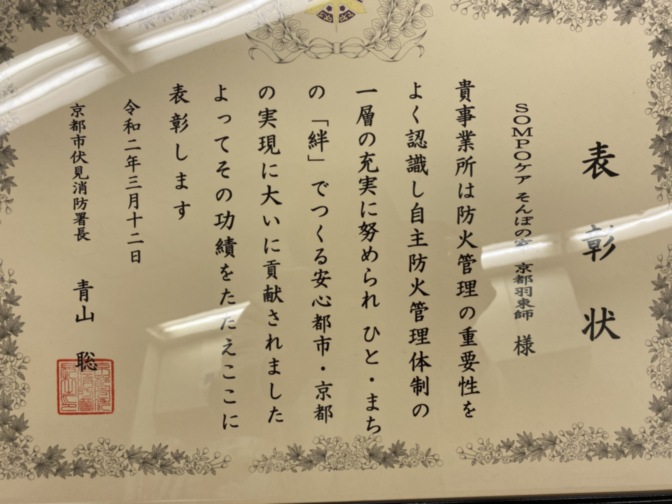 表彰状
SOMPOケア そんぽの家 京都羽束師 様
貴事業所は防火管理の重要性を
よく認識し自主防火管理体制の
一層の充実に努められ ひと・まち
の「絆」でつくる安心都市・京都
の実現に大いに貢献されました
よってその功績をたたえここに
表彰します
令和二年三月十二日
京都市伏見消防署長 青山 聡